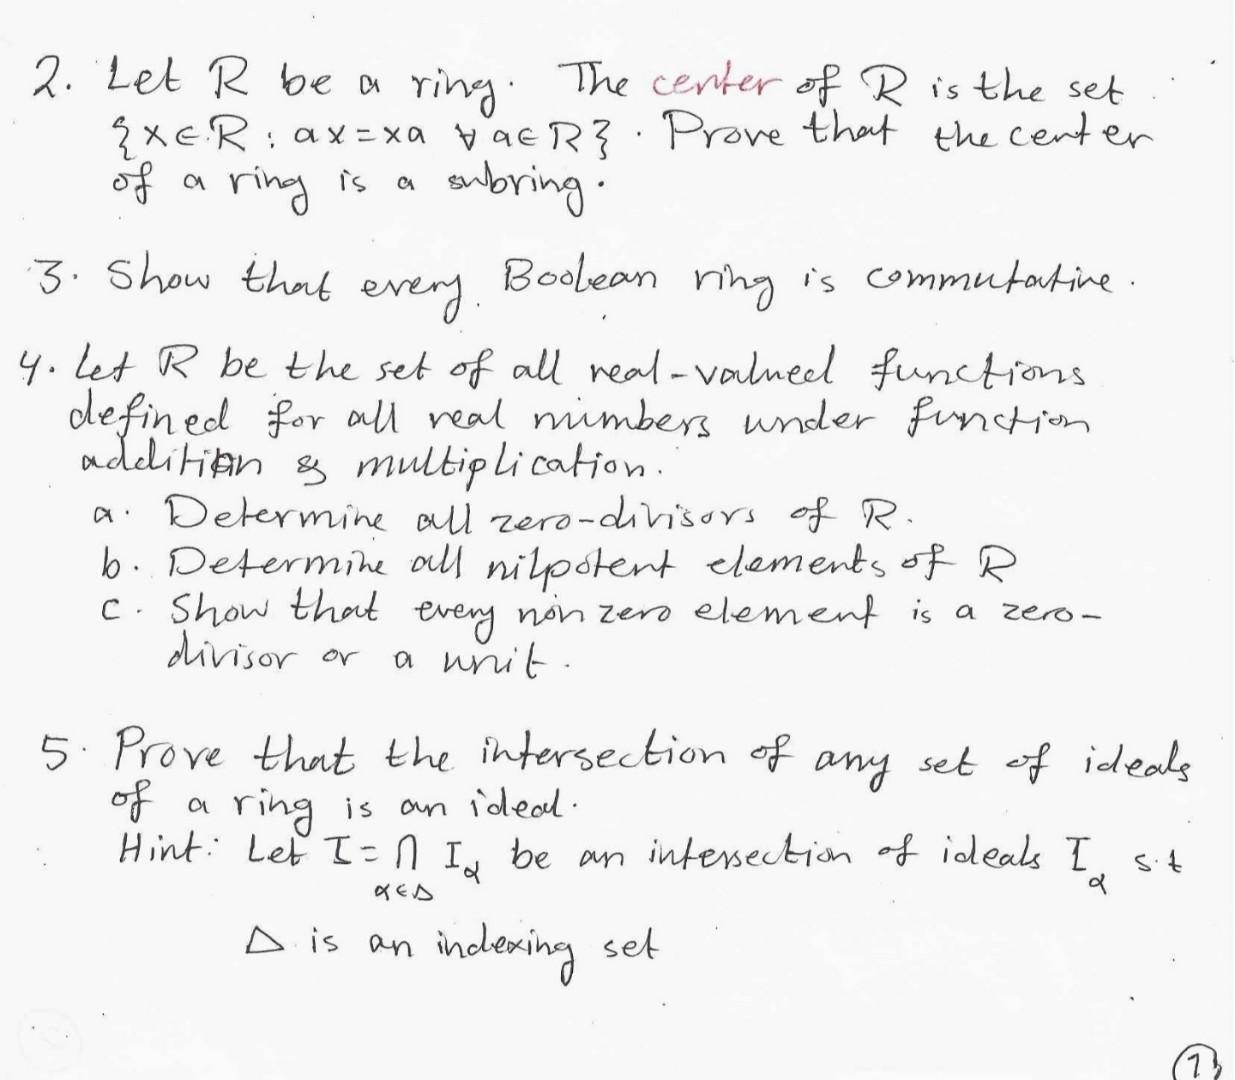 2. Let R be a ring. The center of R is the set
{x∈R : ax=xa ∀ a∈R}. Prove that the center
of a ring is a subring.
3. Show that every Boolean ring is commutative.
4. Let R be the set of all real-valued functions
defined for all real numbers under function
addition & multiplication.
a. Determine all zero-divisors of R.
b. Determine all nilpotent elements of R
c. Show that every nonzero element is a zero-
divisor or a unit.
5. Prove that the intersection of any set of ideals
of a ring is an ideal.
Hint: Let I = ∩ I_α be an intersection of ideals I_α s.t
α∈Δ
Δ is an indexing set